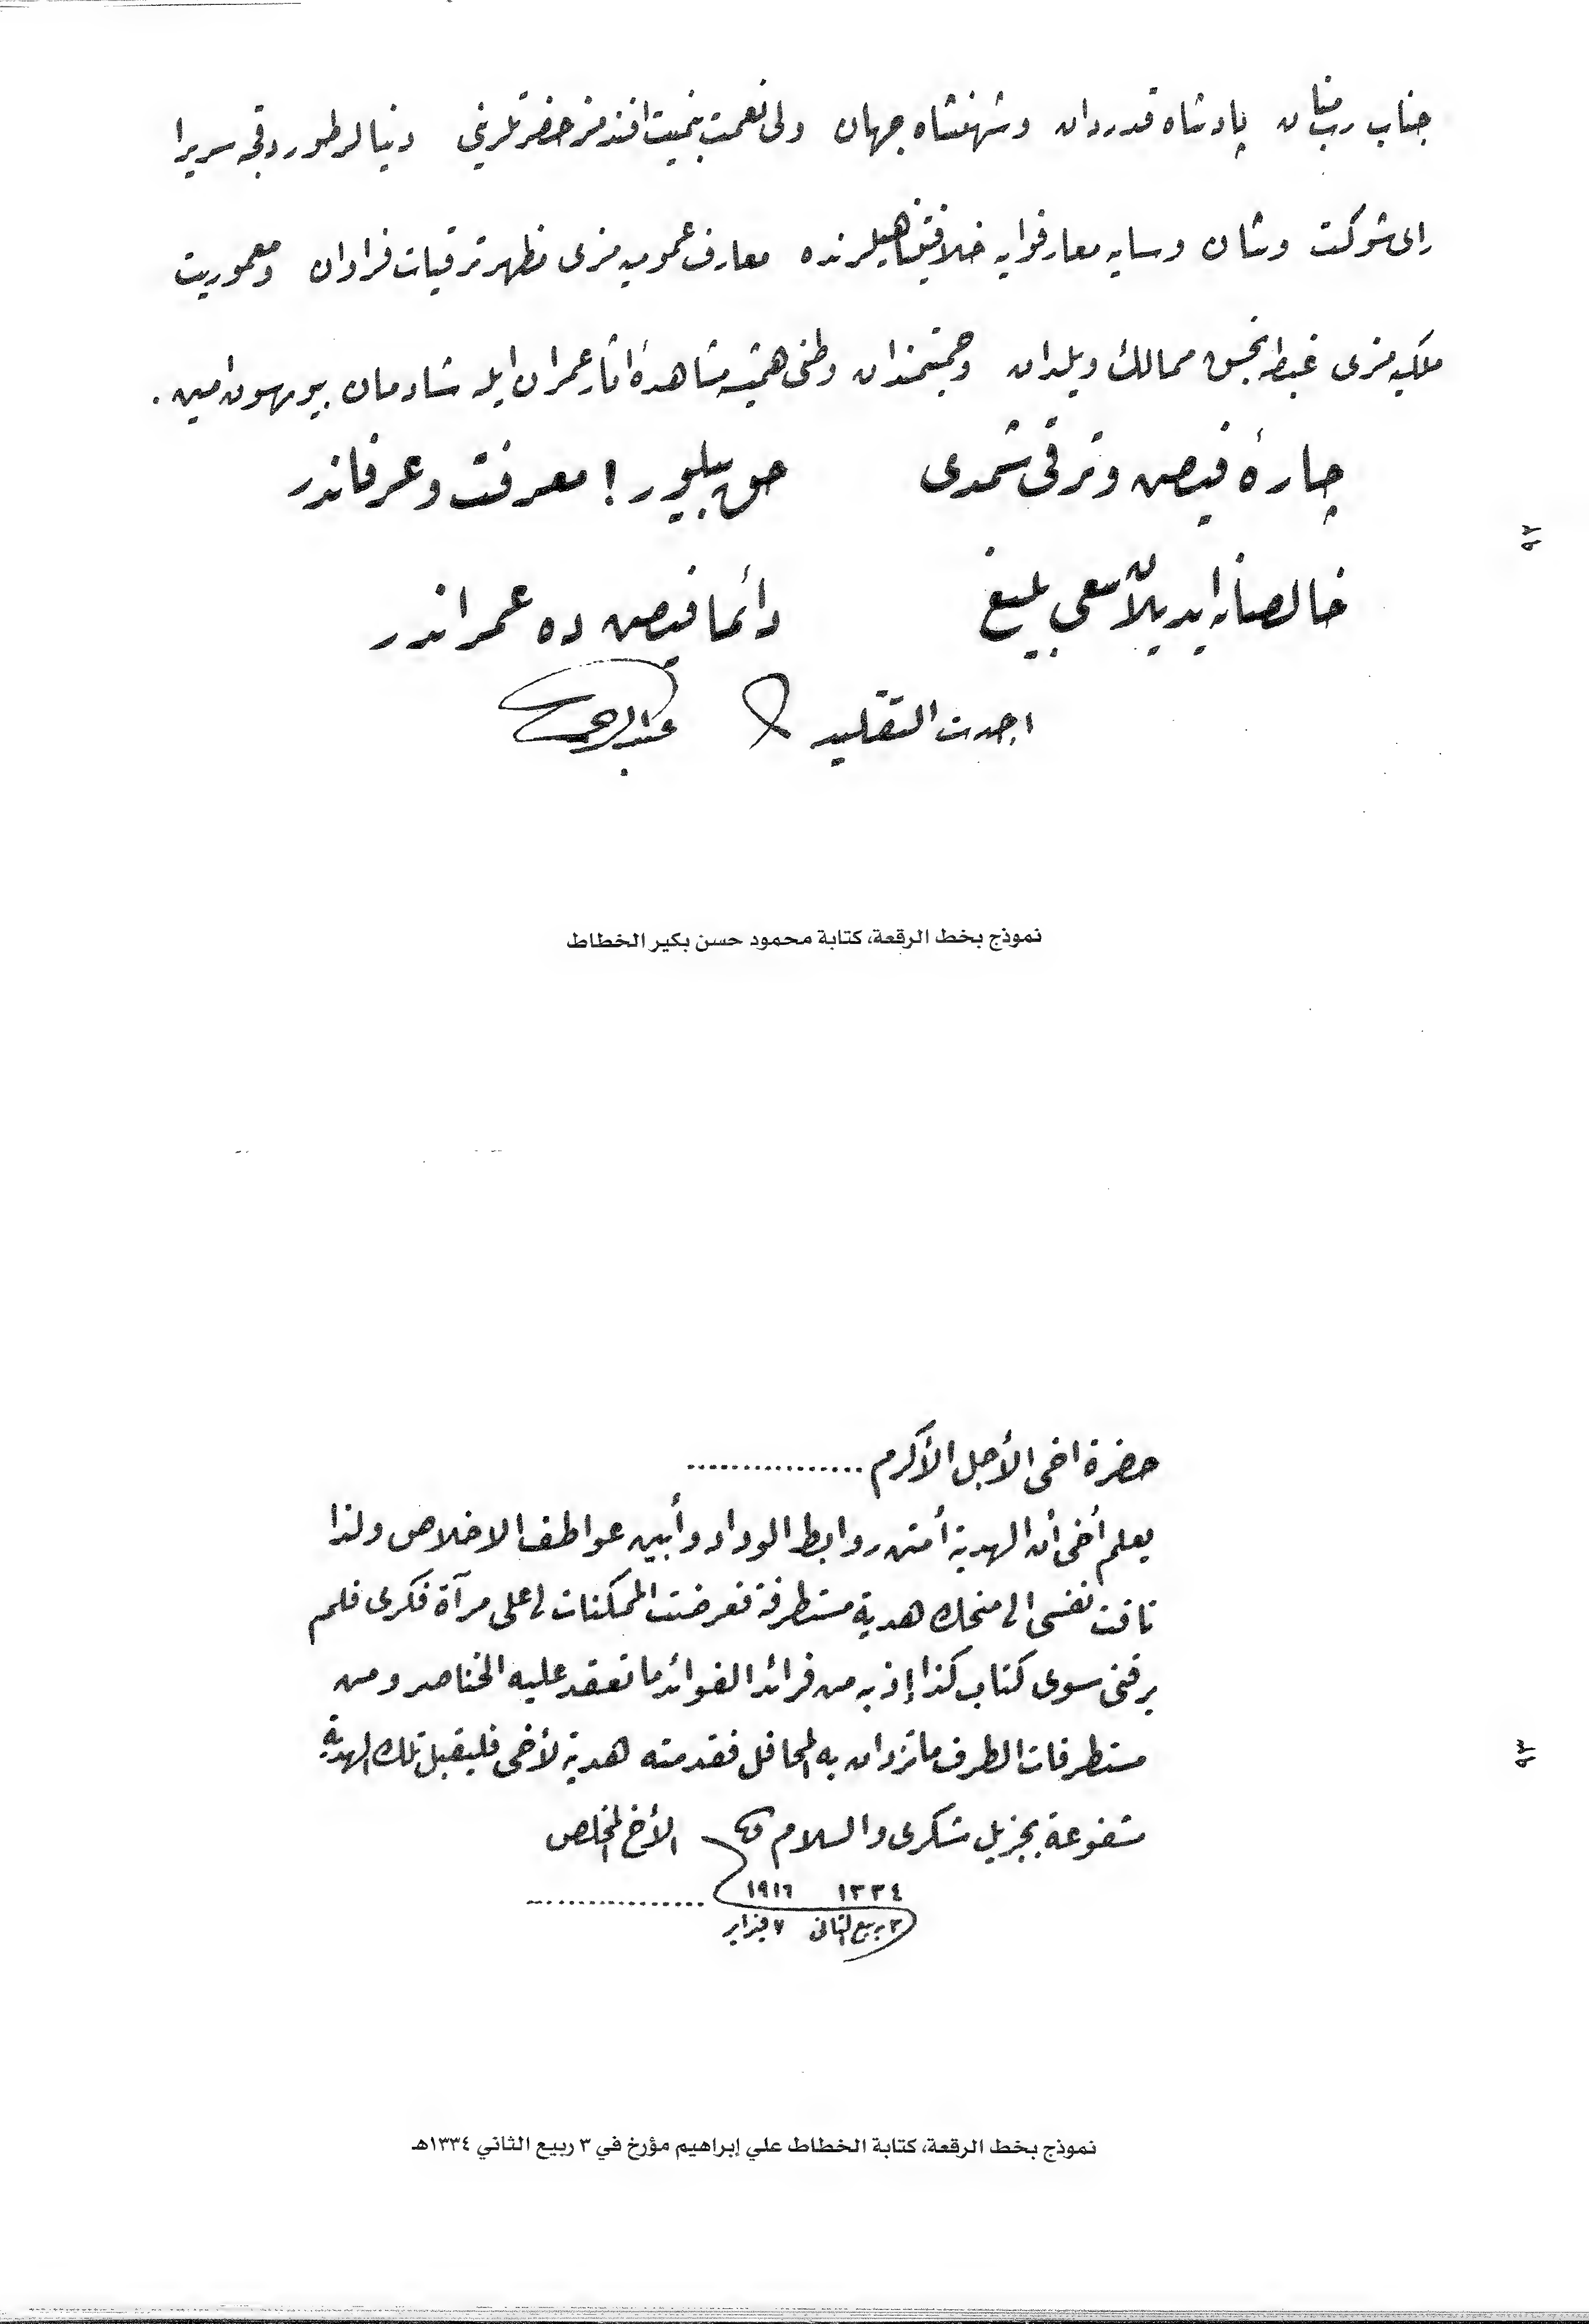 جناب رب منان پادشاه قدردان وشهنشاه جهان ولى نعمت بيمنت افندمز حضرتلرينى دنيالر طوردقجه سريرا
راى شوكت وشان وسايه معارفوايه خلافتپناهيلرنده معارف عموميه مزى مظهر ترقيات فراوان ومعموريت
ملكيه مزى غبطه بخش ممالك وبلدان وحميتمندان وطنى هميشه مشاهدۀ اثار عمران ايله شادمان بيورسون امين .
چارۀ فيض وترقى شمدى حق بيلور ! معرفت وعرفاندر
خالصانه ايديلان سعى بليغ دائما فيض ده عمراندر
اجدت التقليد
٩٢
نموذج بخط الرقعة، كتابة محمود حسن بكير الخطاط
حضرة اخى الأجل الأكرم ................
يعلم أخى أن الهدية أمتن روابط الوداد وأبين عواطف الاخلاص ولذا
تاقت نفسى الى منحك هدية مستطرفة فعرضت الممكنات لى على مرآة فكرى فلم
يرقنى سوى كتاب كذا إذ به من فرائد الفوائد ما تعقد عليه الخناصر ومن
مستطرفات الطرف ماتزدان به المحافل فقدمته هدية لأخى فليقبل تلك الهدية
مشفوعة بجزيل شكرى والسلام الأخ المخلص
١٣٣٤ ١٩١٦ ................
٣ ربيع الثانى ٧ فبراير
٩٣
نموذج بخط الرقعة، كتابة الخطاط علي إبراهيم مؤرخ في ٣ ربيع الثاني ١٣٣٤هـ